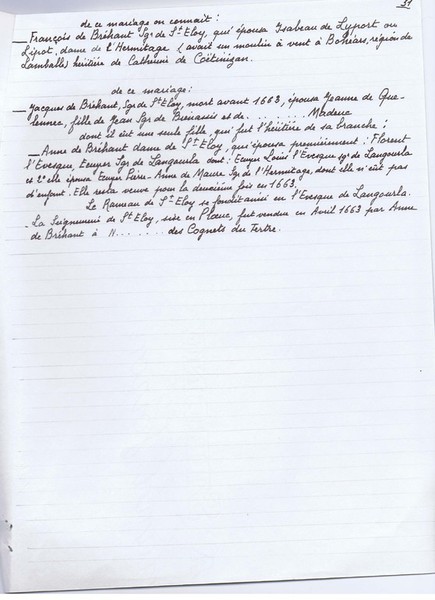 39
de ce mariage on connait :
_ François de Bréhant Sgr de St Eloy, qui épousa Isabeau de Lyport ou
Lipot, dame de l'Hermitage (avait un moulin à vent à Bohéars, région de
Lamballe) héritière de Catherine de Coëtinizan.
de ce mariage :
_ Jacques de Bréhant, Sgr de St Eloy, mort avant 1663, épousa Jeanne de Que-
lennec, fille de Jean Sgr de Bienassis et de ........ Madeuc
dont il eût une seule fille, qui fut l'héritière de sa branche :
_ Anne de Bréhant dame de St Eloy, qui épousa premièrement : Florent
l'Evesque, Ecuyer Sgr de Langourla dont : Ecuyer Louis l'Evesque sgr de Langourla
et 2° elle épousa Ecuyer Pierre-Anne de Maure Sgr de l'Hermitage, dont elle n'eût pas
d'enfant. Elle resta veuve pour la deuxième fois en 1663.
Le Rameau de St Eloy se fondit ainsi en l'Evesque de Langourla.
- La Seigneurie de St Eloy, sise en Ploeuc, fut vendue en Avril 1663 par Anne
de Bréhant à N....... des Cognets du Tertre.